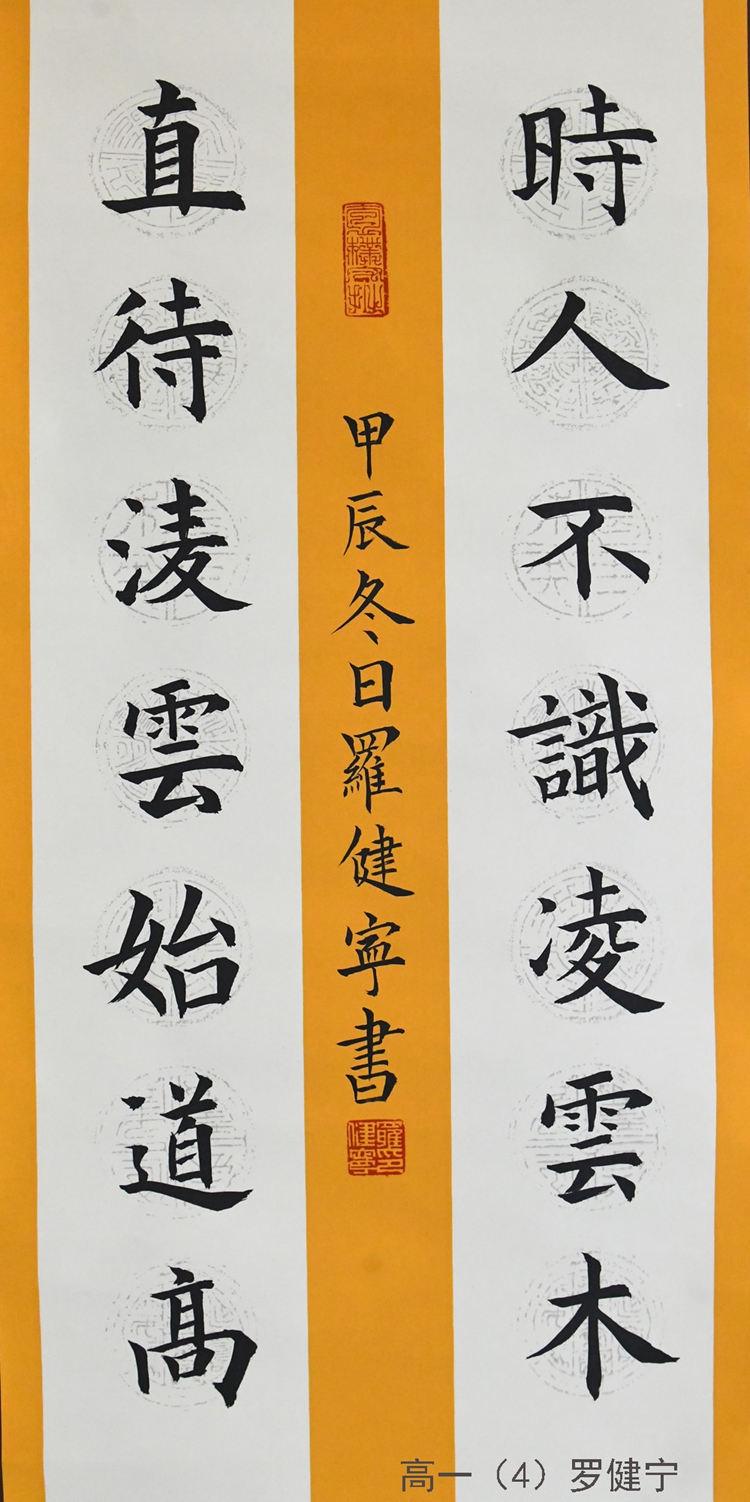 時人不識凌雲木
直待淩雲始道髙
甲辰冬日羅健寧書
羅健寧印
高一（4）罗健宁